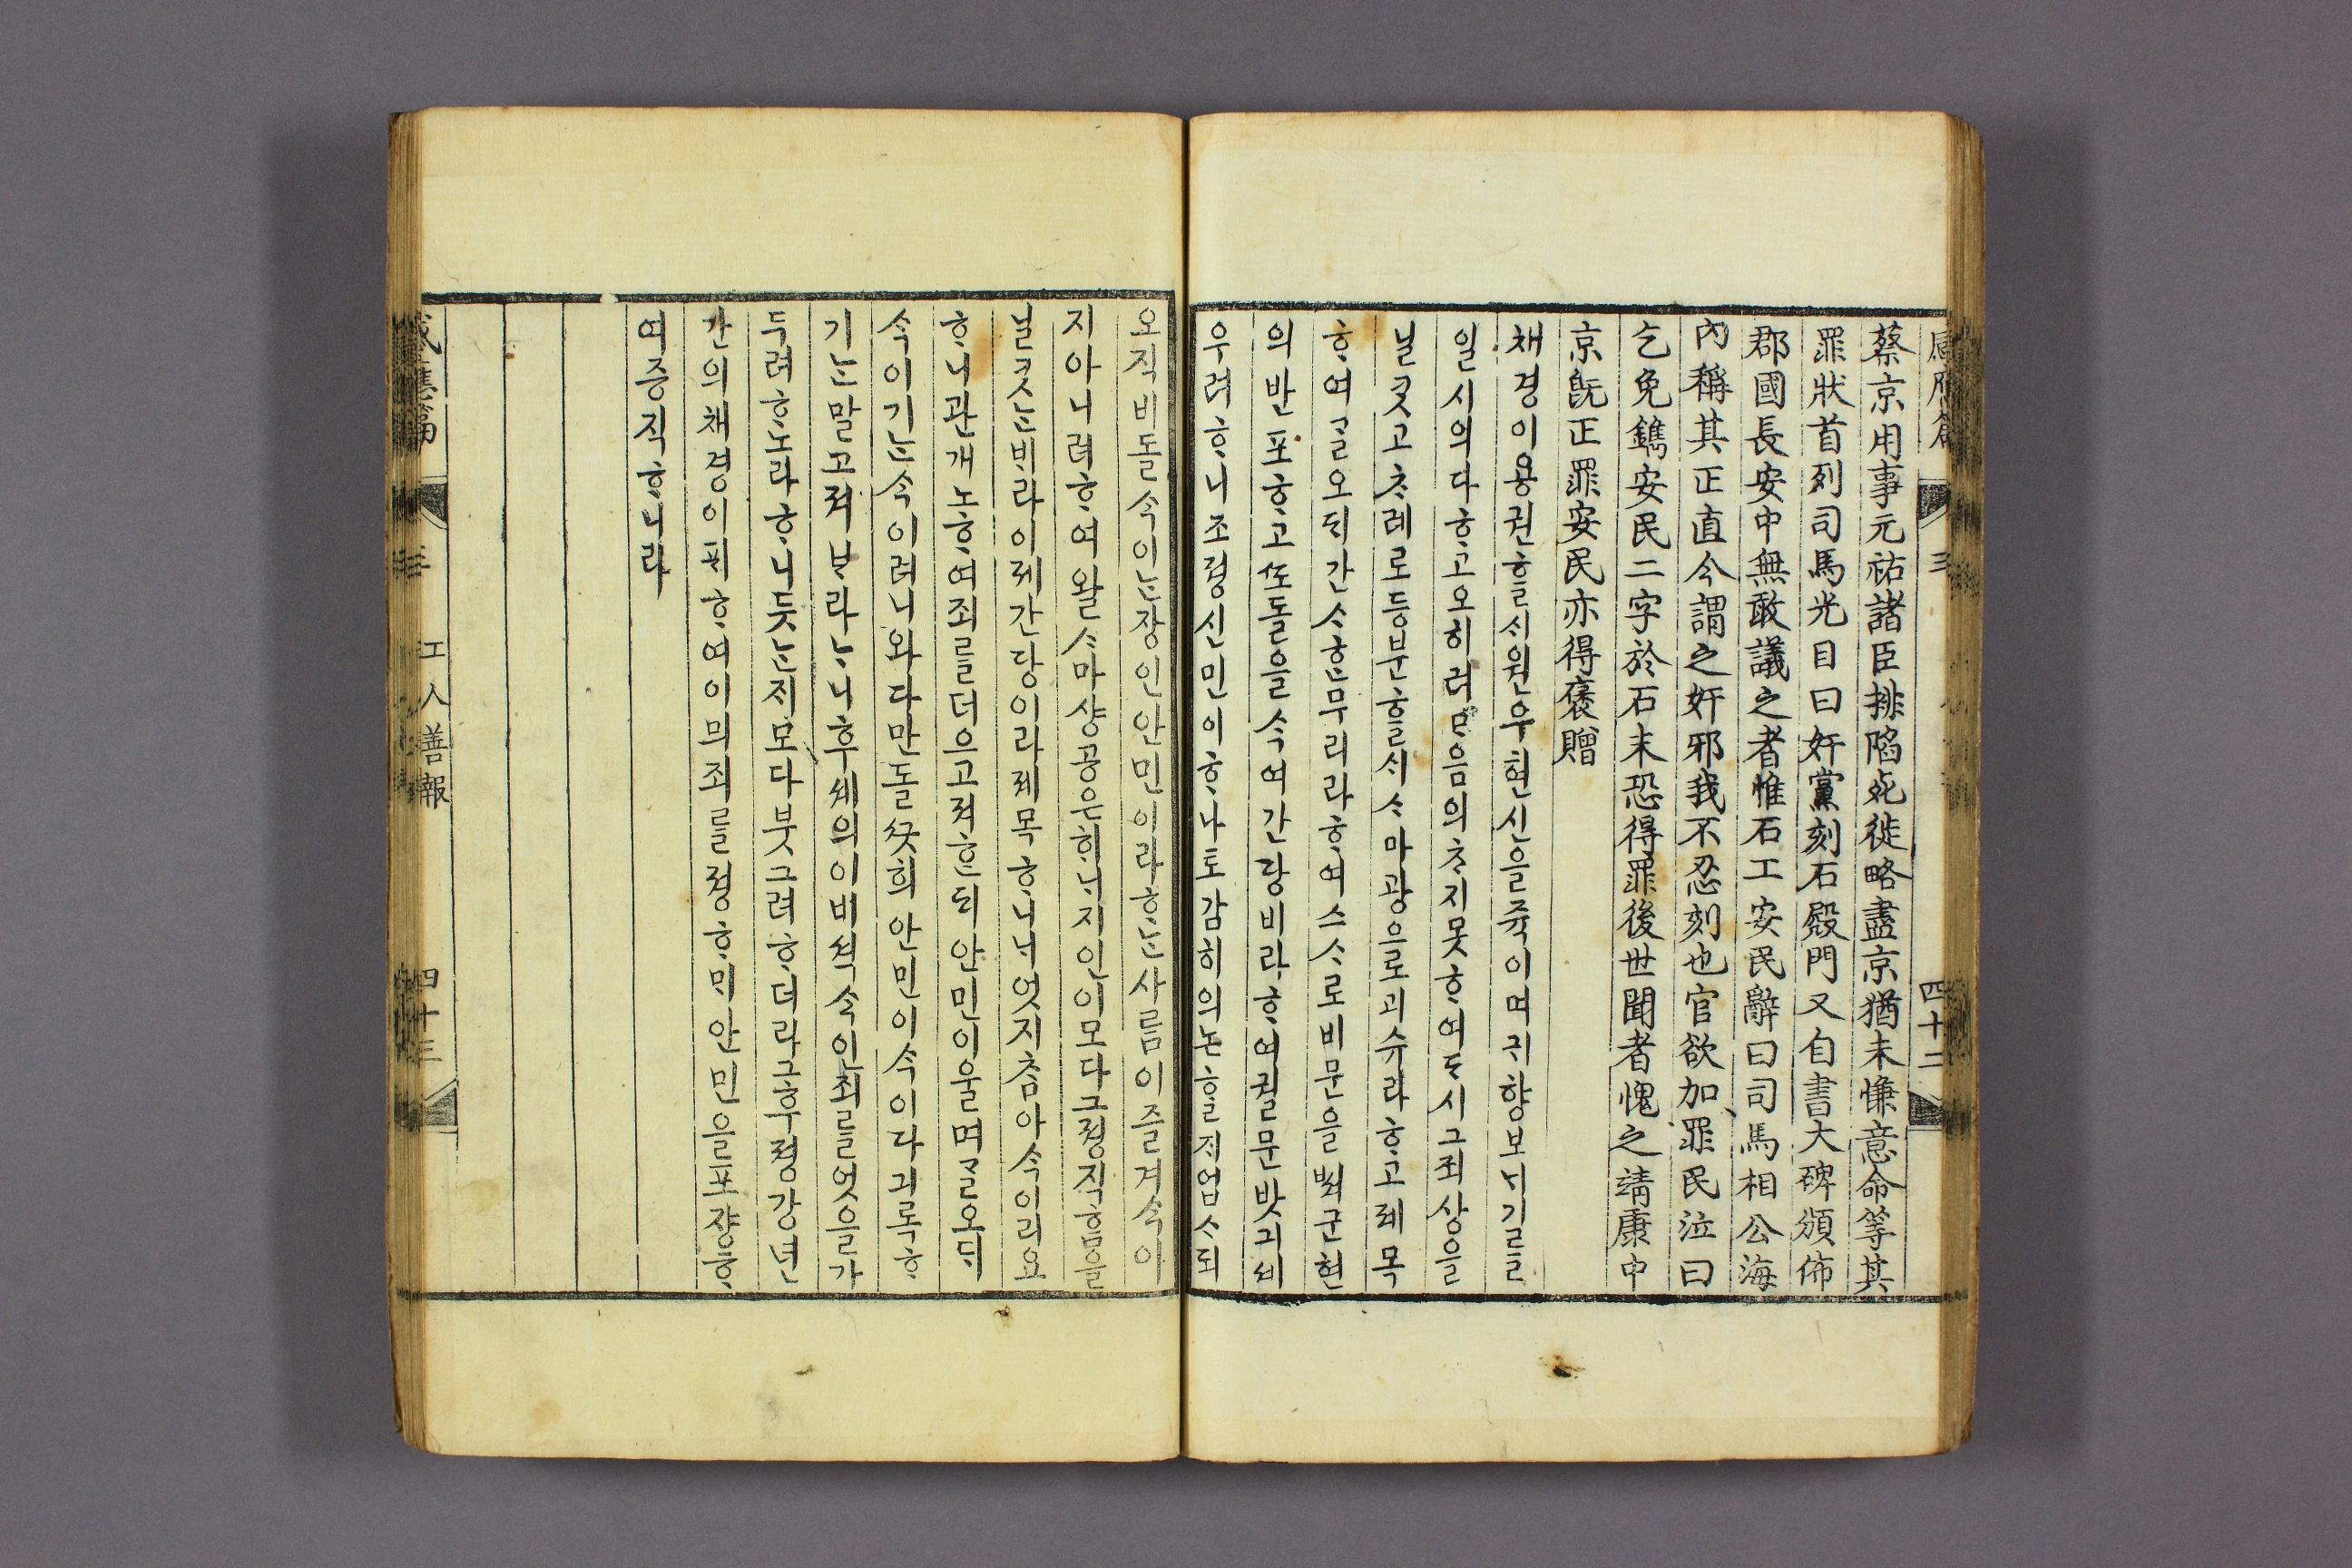 蔡京用事元祐諸臣排陷死徙略盡京猶未慊意命等其
罪狀首列司馬光目曰奸黨刻石殿門又自書大碑頒佈
郡國長安中無敢議之者惟石工安民辭曰司馬相公海
內稱其正直今謂之奸邪我不忍刻也官欲加罪民泣曰
乞免鐫安民二字於石末恐得罪後世聞者愧之靖康中
京旣正罪安民亦得褒贈
채경이용권ᄒᆞᆯᄉᆡ원우현신을쥭이며귀향보ᄂᆡ기를
일시의다ᄒᆞ고오히려ᄆᆞ음의ᄎᆞ지못ᄒᆞ여ᄯᅩ시그죄상을
닐ᄏᆞᆺ고ᄎᆞ례로등분ᄒᆞᆯᄉᆡᄉᆞ마광으로괴슈라ᄒᆞ고제목
ᄒᆞ여ᄀᆞᆯ오ᄃᆡ간ᄉᆞᄒᆞᆫ무리라ᄒᆞ여스ᄉᆞ로비문을ᄡᅥ군현
의반포ᄒᆞ고ᄯᅩ돌을ᄉᆞᆨ여간당비라ᄒᆞ여궐문밧긔셰
우려ᄒᆞ니조졍신민이ᄒᆞ나토감히의논ᄒᆞᆯᄌᆡ업ᄉᆞ되
오직비돌ᄉᆞᆨ이ᄂᆞᆫ쟝인안민이라ᄒᆞᄂᆞᆫ사ᄅᆞᆷ이즐겨ᄉᆞᆨ이
지아니려ᄒᆞ여왈ᄉᆞ마샹공은ᄒᆡᄂᆡ지인이모다그졍직ᄒᆞᆷ을
닐ᄏᆞᆺᄂᆞᆫᄇᆡ라이제간당이라제목ᄒᆞ니ᄂᆡ엇지ᄎᆞᆷ아ᄉᆞᆨ이리요
ᄒᆞ니관개노ᄒᆞ여죄를더으고져ᄒᆞᆫᄃᆡ안민이울며ᄀᆞᆯ오ᄃᆡ
ᄉᆞᆨ이기ᄂᆞᆫᄉᆞᆨ이려니와다만돌ᄭᅳᆺᄒᆡ안민이ᄉᆞᆨ이다긔록ᄒᆞ
기ᄂᆞᆫ말고져ᄇᆞ라ᄂᆞ니후셰의이비셕ᄉᆞᆨ인죄를엇을가
두려ᄒᆞ노라ᄒᆞ니듯ᄂᆞᆫᄌᆡ모다붓그려ᄒᆞ더라그후졍강년
간의채경이패ᄒᆞ여이믜죄를졍ᄒᆞᄆᆡ안민을포쟝ᄒᆞ
여증직ᄒᆞ니라
感應篇 三 工人善報 四十三
三 四十二